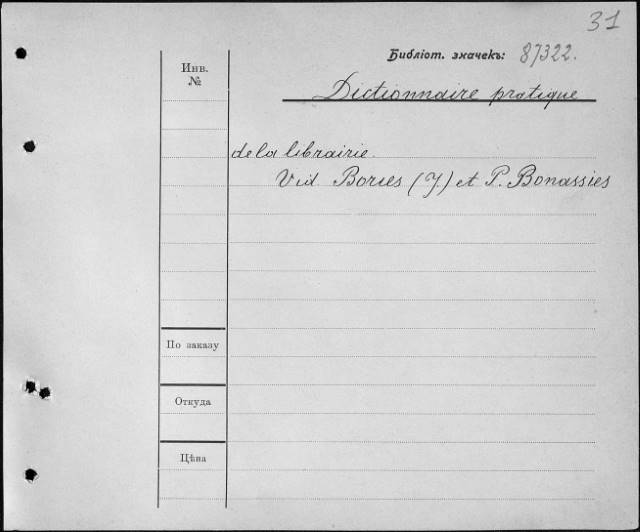 31
Библіот. значекъ: 87322.
Инв.
№
Dictionnaire pratique
de la librairie.
Vid Bories (J.) et P. Bonassies
По заказу
Откуда
Цѣна